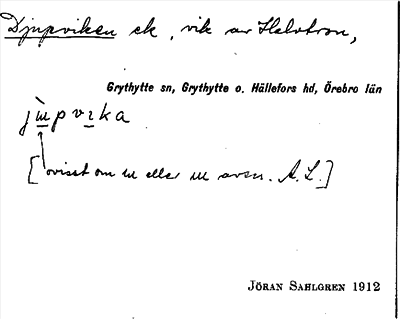 Djupviken ek, vik av Halvtron,
Grythytte sn, Grythytte o. Hällefors hd, Örebro län
jùpvika
[ovisst om u eller u avses. A.L.]
JÖRAN SAHLGREN 1912